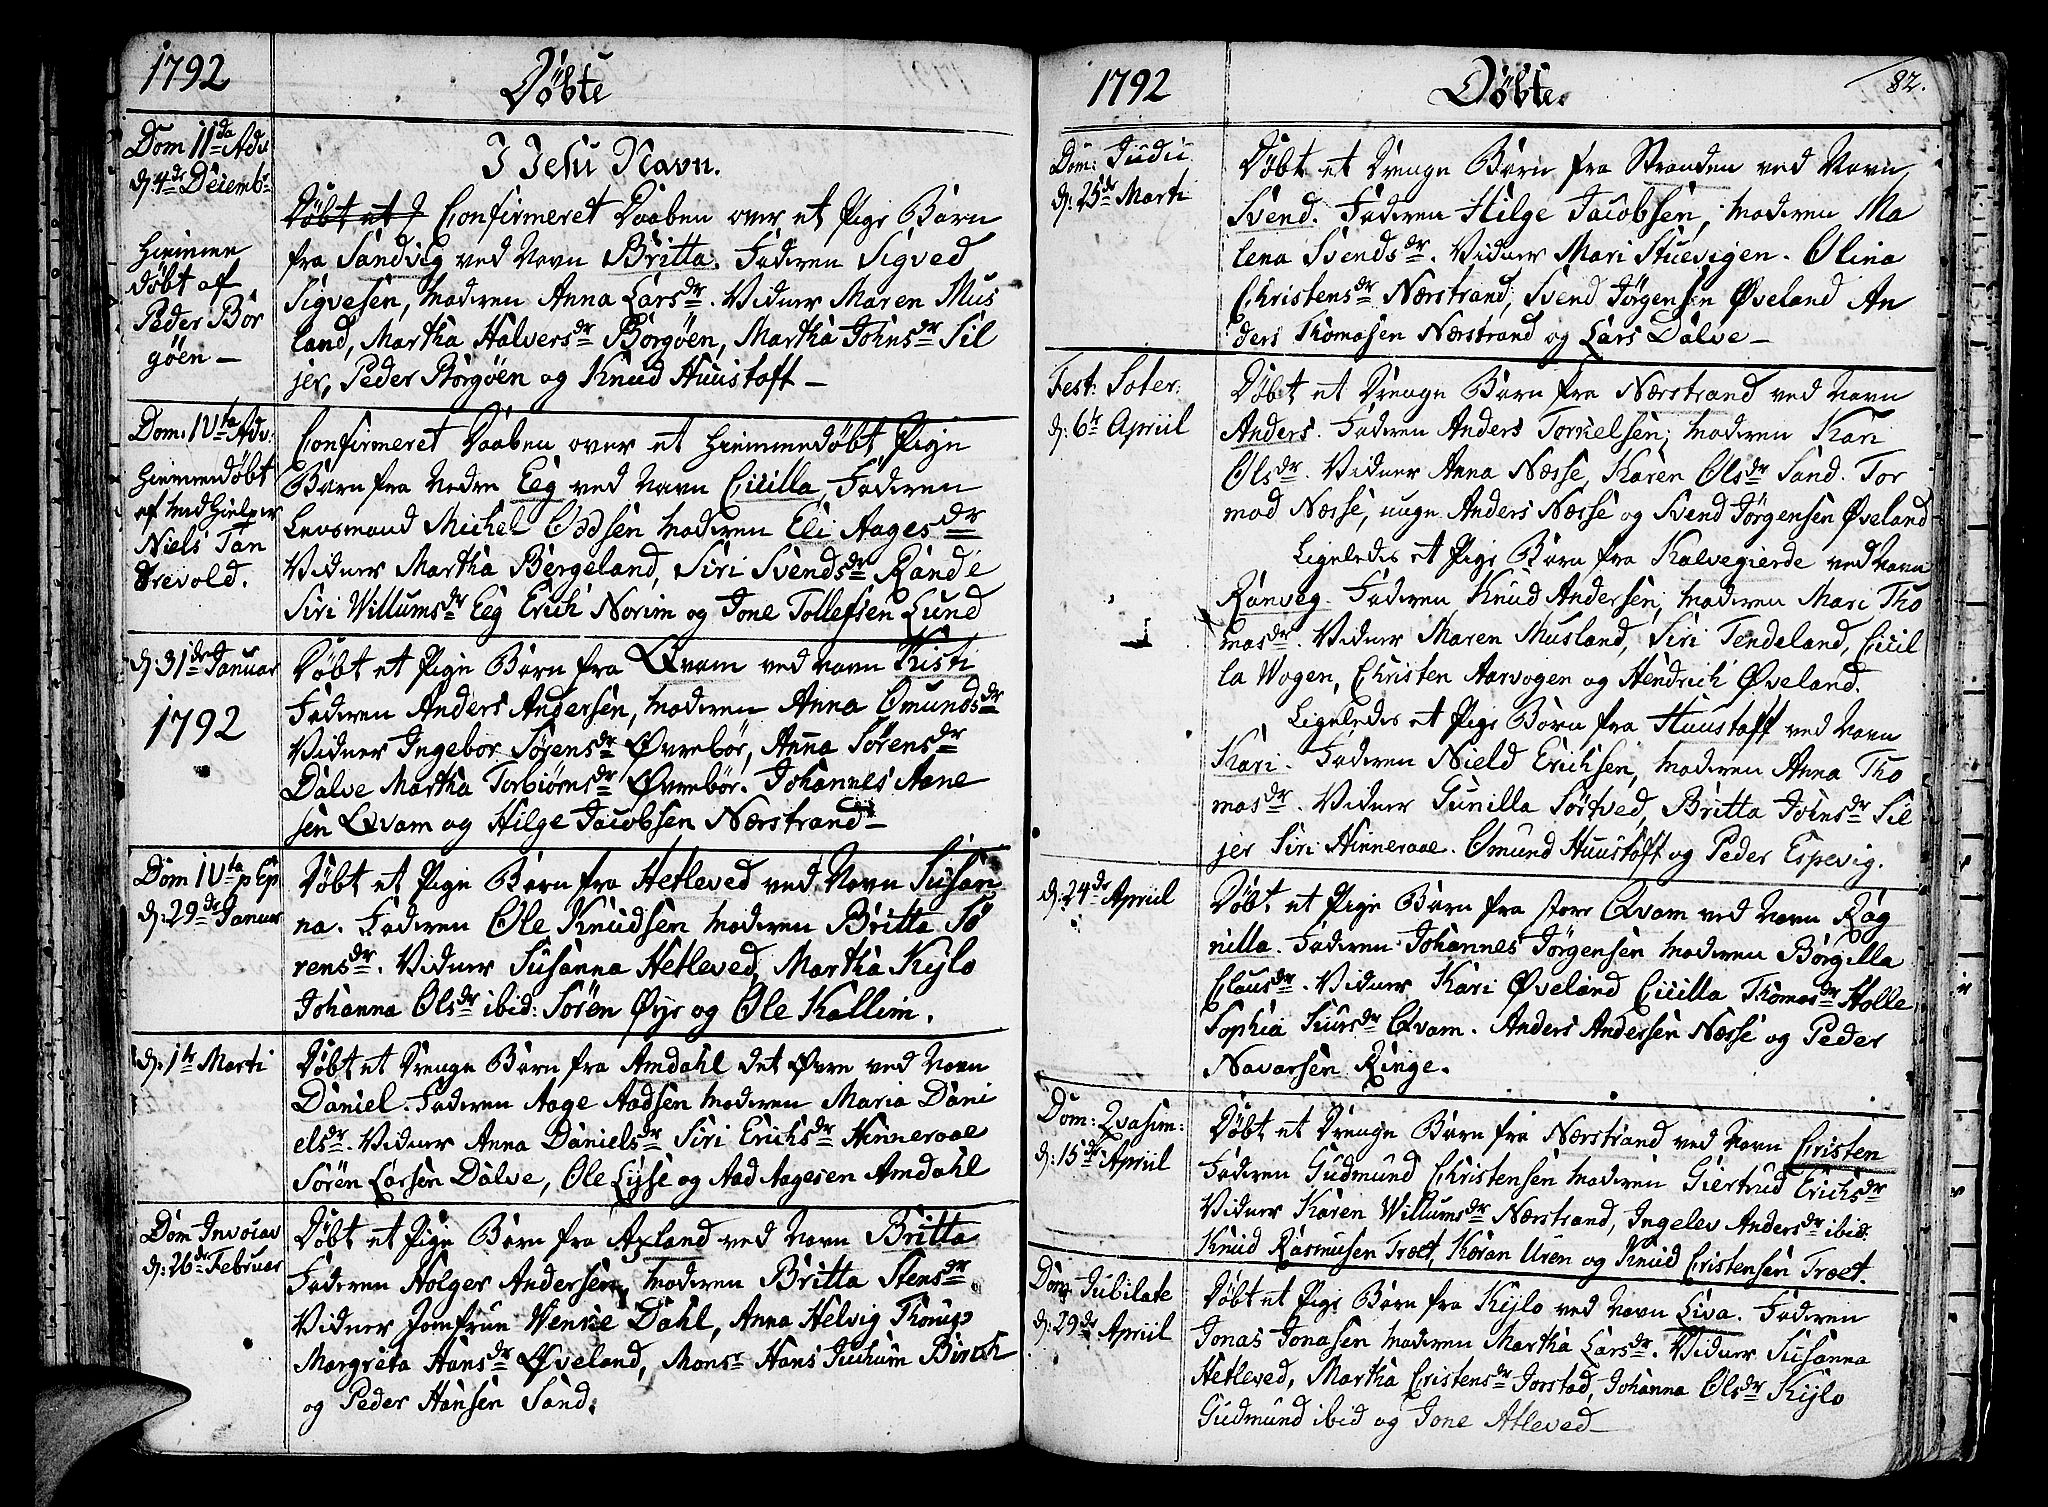 1792
Döbte
Dom II da Adv
d: 4 de Decembr
Hiemme
döbt af
Peder Bör
göen –
I Jehu Navn.
Döbt et P Confirmeret Daaben over et Pige Barn
fra Sandvig ved Navn Britta. Faderen Sigved
Sigvesen, Moderen Anna Lars dr. Vidner Maren Mus
land, Martha Halvers dr Borgöen, Martha Johns dr Sil
jer, Peder Borgöen og Knud Huustoft –
Dom: IV ta Adv:
Hiemmedöbt
af Medhielper
Niels Tan
grevold.
Confirmeret Daaben over et hiemmedöbt Pige
Barn fra Nedre Eeg ved Navn Cicilla, Faderen
Levsmand Michel Odsen Moderen Eli Aages dr
Vidner Martha Bergeland, Siri Svends dr Rande
Siri Willums dr Eeg Erich Norim og Jone Tollefsen Lund
d: 31 de Januar
1792
Döbt et Pige Barn fra Qvam ved Navn Kisti
Faderen Anders Andersen, Moderen Anna Omunds dr
Vidner Ingebor Sörens dr Øvrebör, Anna Sörens dr
Dalve Martha Torbiörns dr Øvrebör. Johannes Aane
sen Qvam og Hilge Jacobsen Nærstrand –
Dom IV ta p Ep
d: 29 de Januar
Döbt et Pige Barn fra Hetleved ved Navn Susan
na. Faderen Ole Knudsen Moderen Britta Sö
rens dr. Vidner Susanna Hetleved, Martha Kylo
Johanna Ols dr ibid: Sören Øye og Ole Kallim.
d: 1 te Marti
Döbt et Drenge Barn fra Amdahl det Øvre ved Navn
Daniel. Faderen Aage Aadsen Moderen Maria Dani
els dr. Vidner Anna Daniels dr Siri Erichs dr Hinneraae
Sören Larsen Dalve, Ole Lysse og Aad Aagesen Amdahl
Dom Invocav
d: 26 de Februar
Döbt et Pige Barn fra Axland ved Navn Britta
Faderen Holger Andersen, Moderen Britta Stens dr
Vidner Jomfrue Wenke Dahl, Anna Helvig Thorup
Margreta Hans dr Øveland, Mons r Hans Juchum Birch
og Peder Hansen Sand.
1792
Döbte.
82.
Dom: Judic
d: 25 de Marti
Döbt et Drenge Barn fra Stranden ved Navn
Svend. Faderen Hilge Jacobsen, Moderen Ma
lena Svends dr. Vidner Mari Stuevigen. Olina
Christens dr Nærstrand, Svend Jörgensen Øveland An
ders Thomasen Nærstrand og Lars Dalve –
Fest: Soter:
d: 6 te Apriil
Döbt et Drenge Barn fra Nærstrand ved Navn
Anders. Faderen Anders Torkelsen, Moderen Kari
Ols dr. Vidner Anna Næsse, Karen Ols dr Sand. Tor
mod Næsse, unge Anders Næsse og Svend Jörgensen Øveland –
Ligeledes et Pige Barn fra Kalvegierde ved Navn
Ranveg. Faderen Knud Andersen, Moderen Mari Tho
mas dr. Vidner Maren Musland, Siri Tendeland, Cicil
la Wogen, Christen Aarvogen og Hendrich Øveland.
Ligeledes et Pige Barn fra Huustoft ved Navn
Kari. Faderen Nield Erichsen, Moderen Anna Tho
mas dr. Vidner Gunilla Sörtved, Britta Johns dr Sil
jer Siri Hinneraae. Omund Huustoft og Peder Espevig.
d: 24 de Apriil
Döbt et Pige Barn fra store Qvam ved Navn Rag
nilla. Faderen Johannes Jörgensen Moderen Börgilla
Claus dr. Vidner Kari Øveland Cicilla Thomas dr Holle
Sophia Siurs dr Qvam. Anders Andersen Næsse og Peder
Navarsen Ringe.
Dom: Qvasim:
d: 15 de Apriil
Döbt et Drenge Barn fra Nærstrand ved Navn Cristen
Faderen Gudmund Christensen Moderen Giertrud Erichs dr
Vidner Karen Willums dr Nærstrand, Ingelev Anders dr ibid:
Knud Rasmusen Træet, Köran Uren og Knud Cristensen Træet.
Dom Jubilate
d: 29 de Apriil
Döbt et Pige Barn fra Kylo ved Navn Liva. Faderen
Jonas Jonasen Moderen Martha Lars dr. Vidner Susanna
Hetleved, Martha Cristens dr Jorstad, Johanna Ols dr Kylo
Gudmund ibid og Jone Atleved –